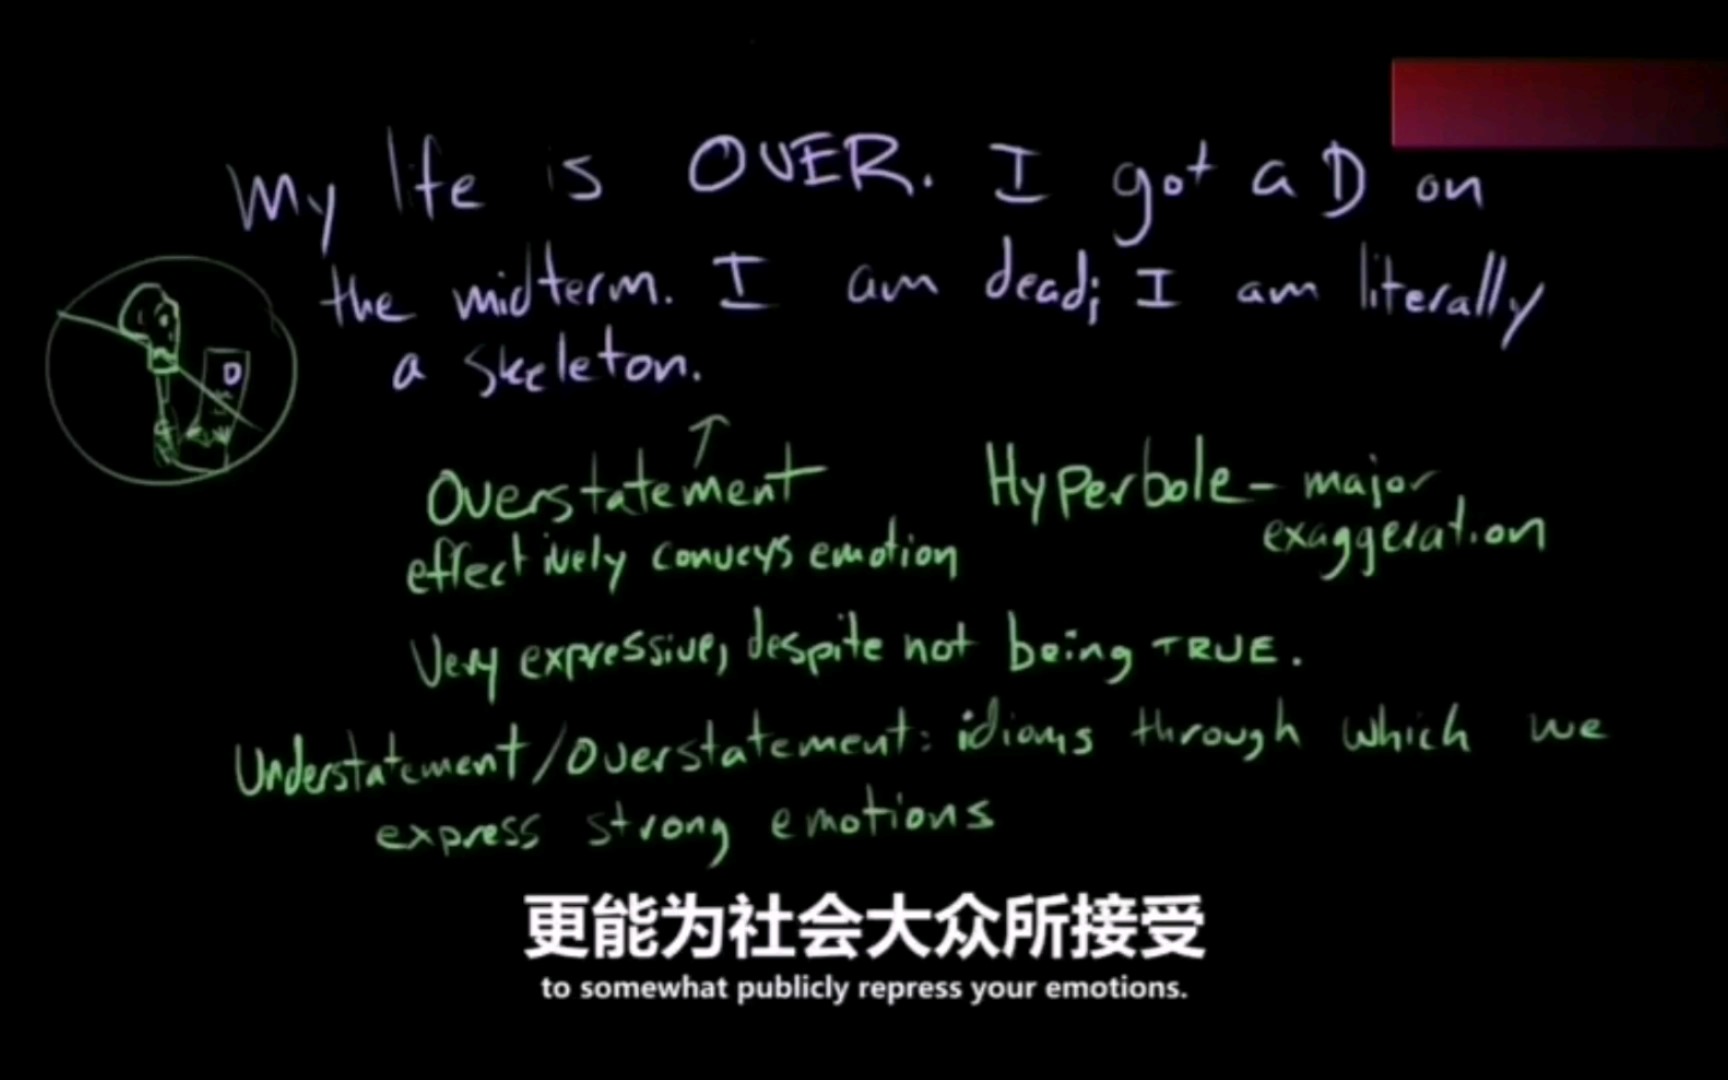 My life is OVER. I got a D on
the midterm. I am dead; I am literally
a skeleton.
D
Overstatement
effectively conveys emotion
Hyperbole - major
exaggeration
Very expressive, despite not being TRUE.
Understatement/Overstatement: idioms through which we
express strong emotions
更能为社会大众所接受
to somewhat publicly repress your emotions.